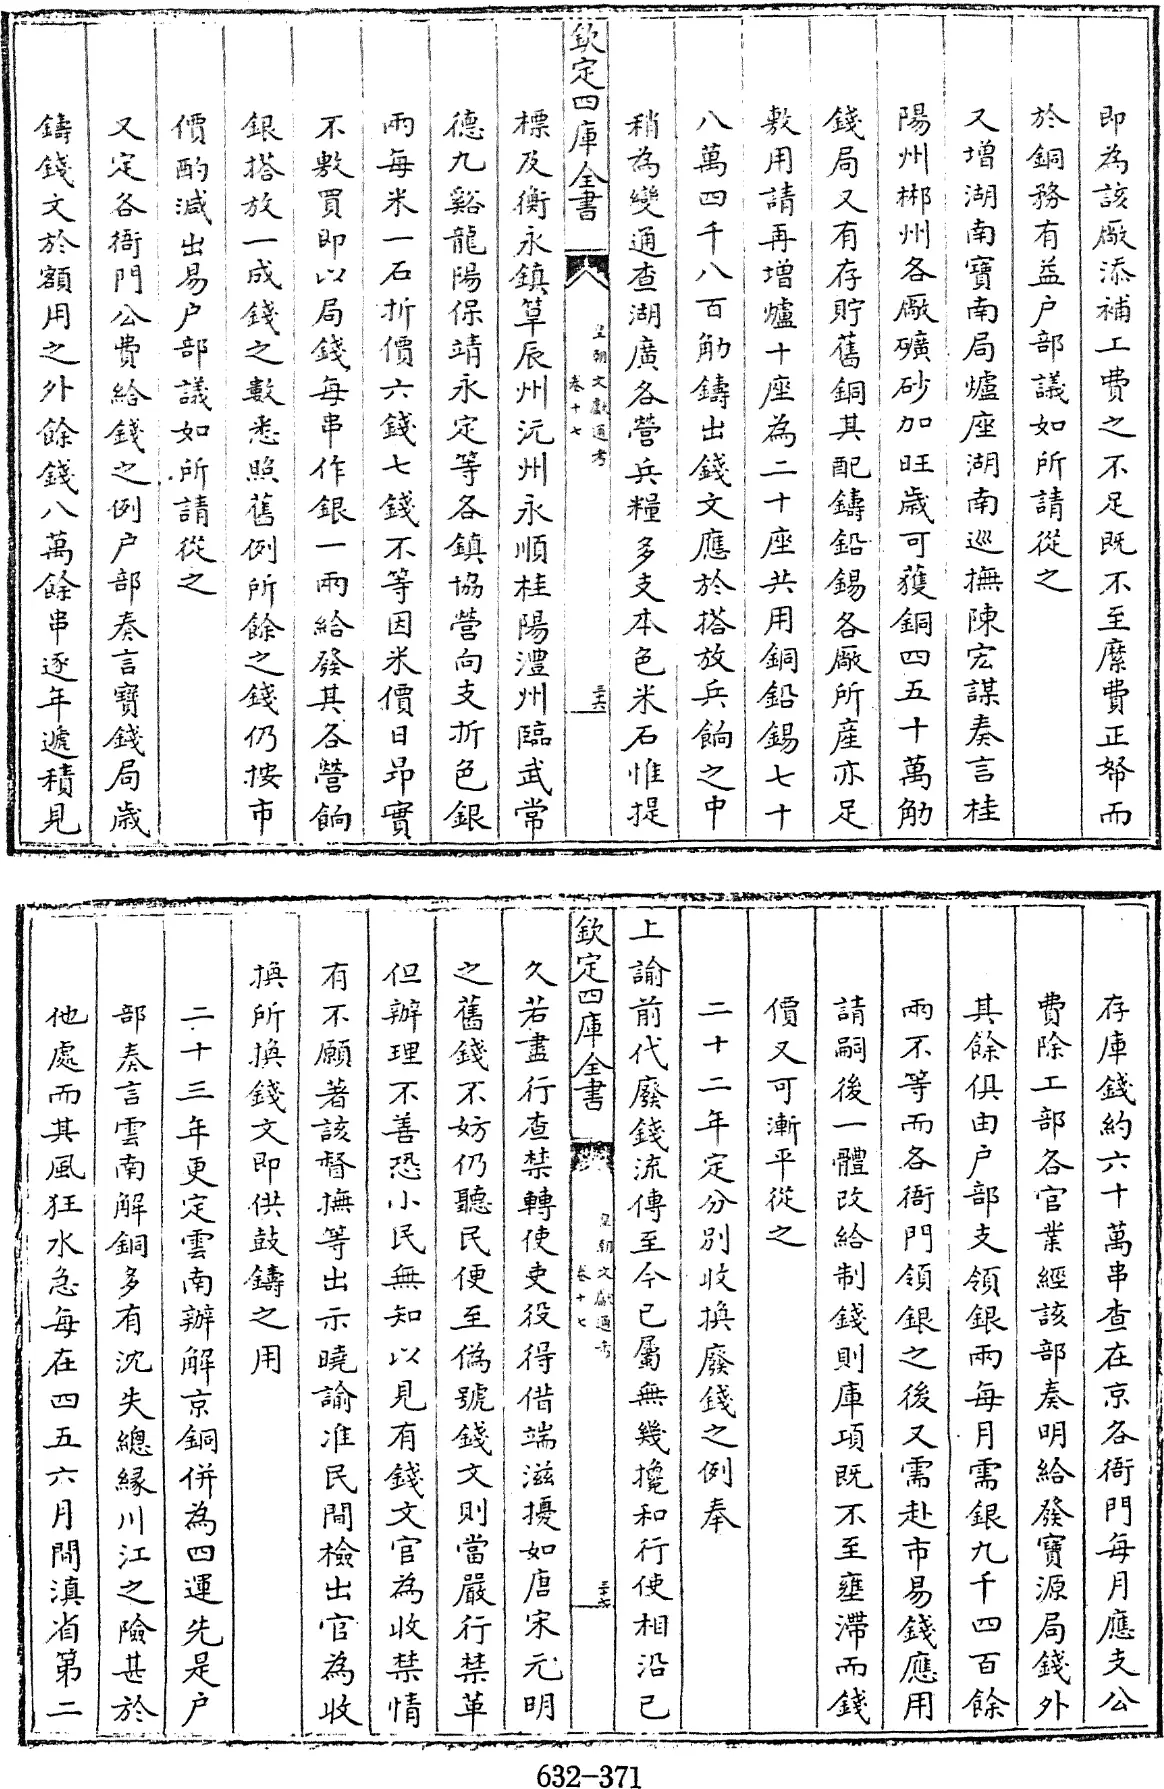 即為該廠添補工費之不足既不至縻費正帑而
於銅務有益户部議如所請從之
又增湖南寶南局爐座湖南巡撫陳宏謀奏言桂
陽州郴州各廠礦砂加旺歲可獲銅四五十萬觔
錢局又有存貯舊銅其配鑄鉛錫各廠所産亦足
敷用請再增爐十座為二十座共用銅鉛錫七十
八萬四千八百觔鑄出錢文應於搭放兵餉之中
稍為變通查湖廣各營兵糧多支本色米石惟提
欽定四庫全書
皇朝文獻通考
卷十七
三十六
標及衡永鎮草辰州沅州永順桂陽澧州臨武常
德九谿龍陽保靖永定等各鎮協營向支折色銀
兩每米一石折價六錢七錢不等因米價日昂實
不敷買即以局錢每串作銀一兩給發其各營餉
銀搭放一成錢之數悉照舊例所餘之錢仍按市
價酌減出易户部議如所請從之
又定各衙門公費給錢之例户部奏言寶錢局歲
鑄錢文於額用之外餘錢八萬餘串逐年遞積見
存庫錢約六十萬串查在京各衙門每月應支公
費除工部各官業經該部奏明給發寶源局錢外
其餘俱由户部支領銀兩每月需銀九千四百餘
兩不等而各衙門領銀之後又需赴市易錢應用
請嗣後一體改給制錢則庫項既不至壅滯而錢
價又可漸平從之
二十二年定分別收換廢錢之例奉
上諭前代廢錢流傳至今已屬無幾攙和行使相沿已
欽定四庫全書
皇朝文獻通考
卷十七
三十七
久若盡行查禁轉使吏役得借端滋擾如唐宋元明
之舊錢不妨仍聽民便至偽號錢文則當嚴行禁革
但辦理不善恐小民無知以見有錢文官為收禁情
有不願著該督撫等出示曉諭准民間檢出官為收
換所換錢文即供鼓鑄之用
二十三年更定雲南辦解京銅併為四運先是户
部奏言雲南解銅多有沈失總緣川江之險甚於
他處而其風狂水急每在四五六月間滇省第二
632-371